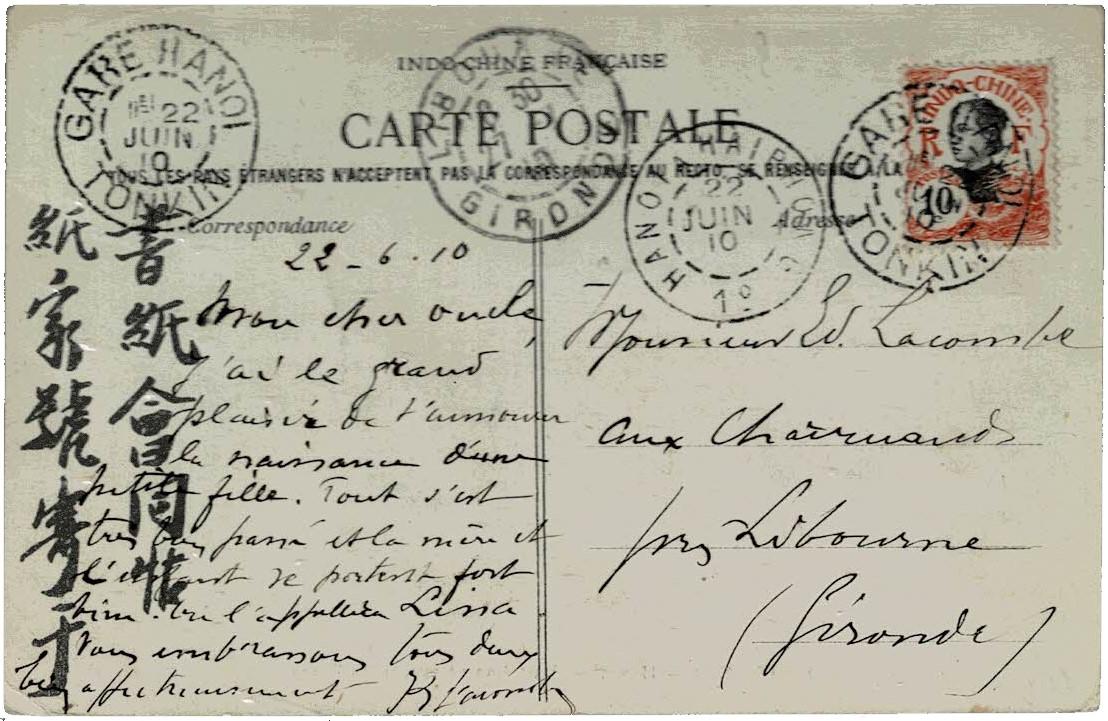 INDO-CHINE FRANÇAISE
CARTE POSTALE
TOUS LES PAYS ÉTRANGERS N'ACCEPTENT PAS LA CORRESPONDANCE AU RECTO, SE RENSEIGNER A LA
Correspondance
Adresse
GARE HANOI
22
JUIN
10
TONKIN
LIBOURNE
GIRONDE
HANOI A HAIPHONG
22
JUIN
10
1º
GARE
TONKIN
INDO-CHINE
R F
10
22-6.10
Mon cher oncle,
J'ai le grand
plaisir de t'annoncer
la naissance d'une
petite fille. Tout s'est
très bien passé et la mère et
l'enfant se portent fort
bien. On l'appellera Lissa
Nous embrassons tous deux
bien affectueusement
Monsieur Ed. Lacombe
aux Charruauds
près Libourne
(Gironde)
書紙會同
紙家號寄